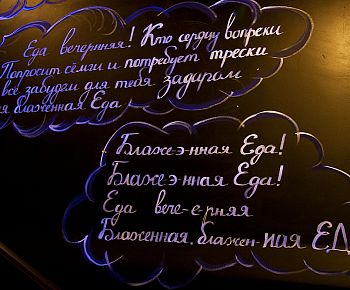 Еда вечерняя! Кто сердцу вопреки
Попросит сёмги и потребует трески
все забудем для тебя задаром
я блаженная Еда
Блаже-э-нная Еда!
Блаже-э-нная Еда!
Еда вече-е-рняя
Блаженная, блажен-ная ЕД